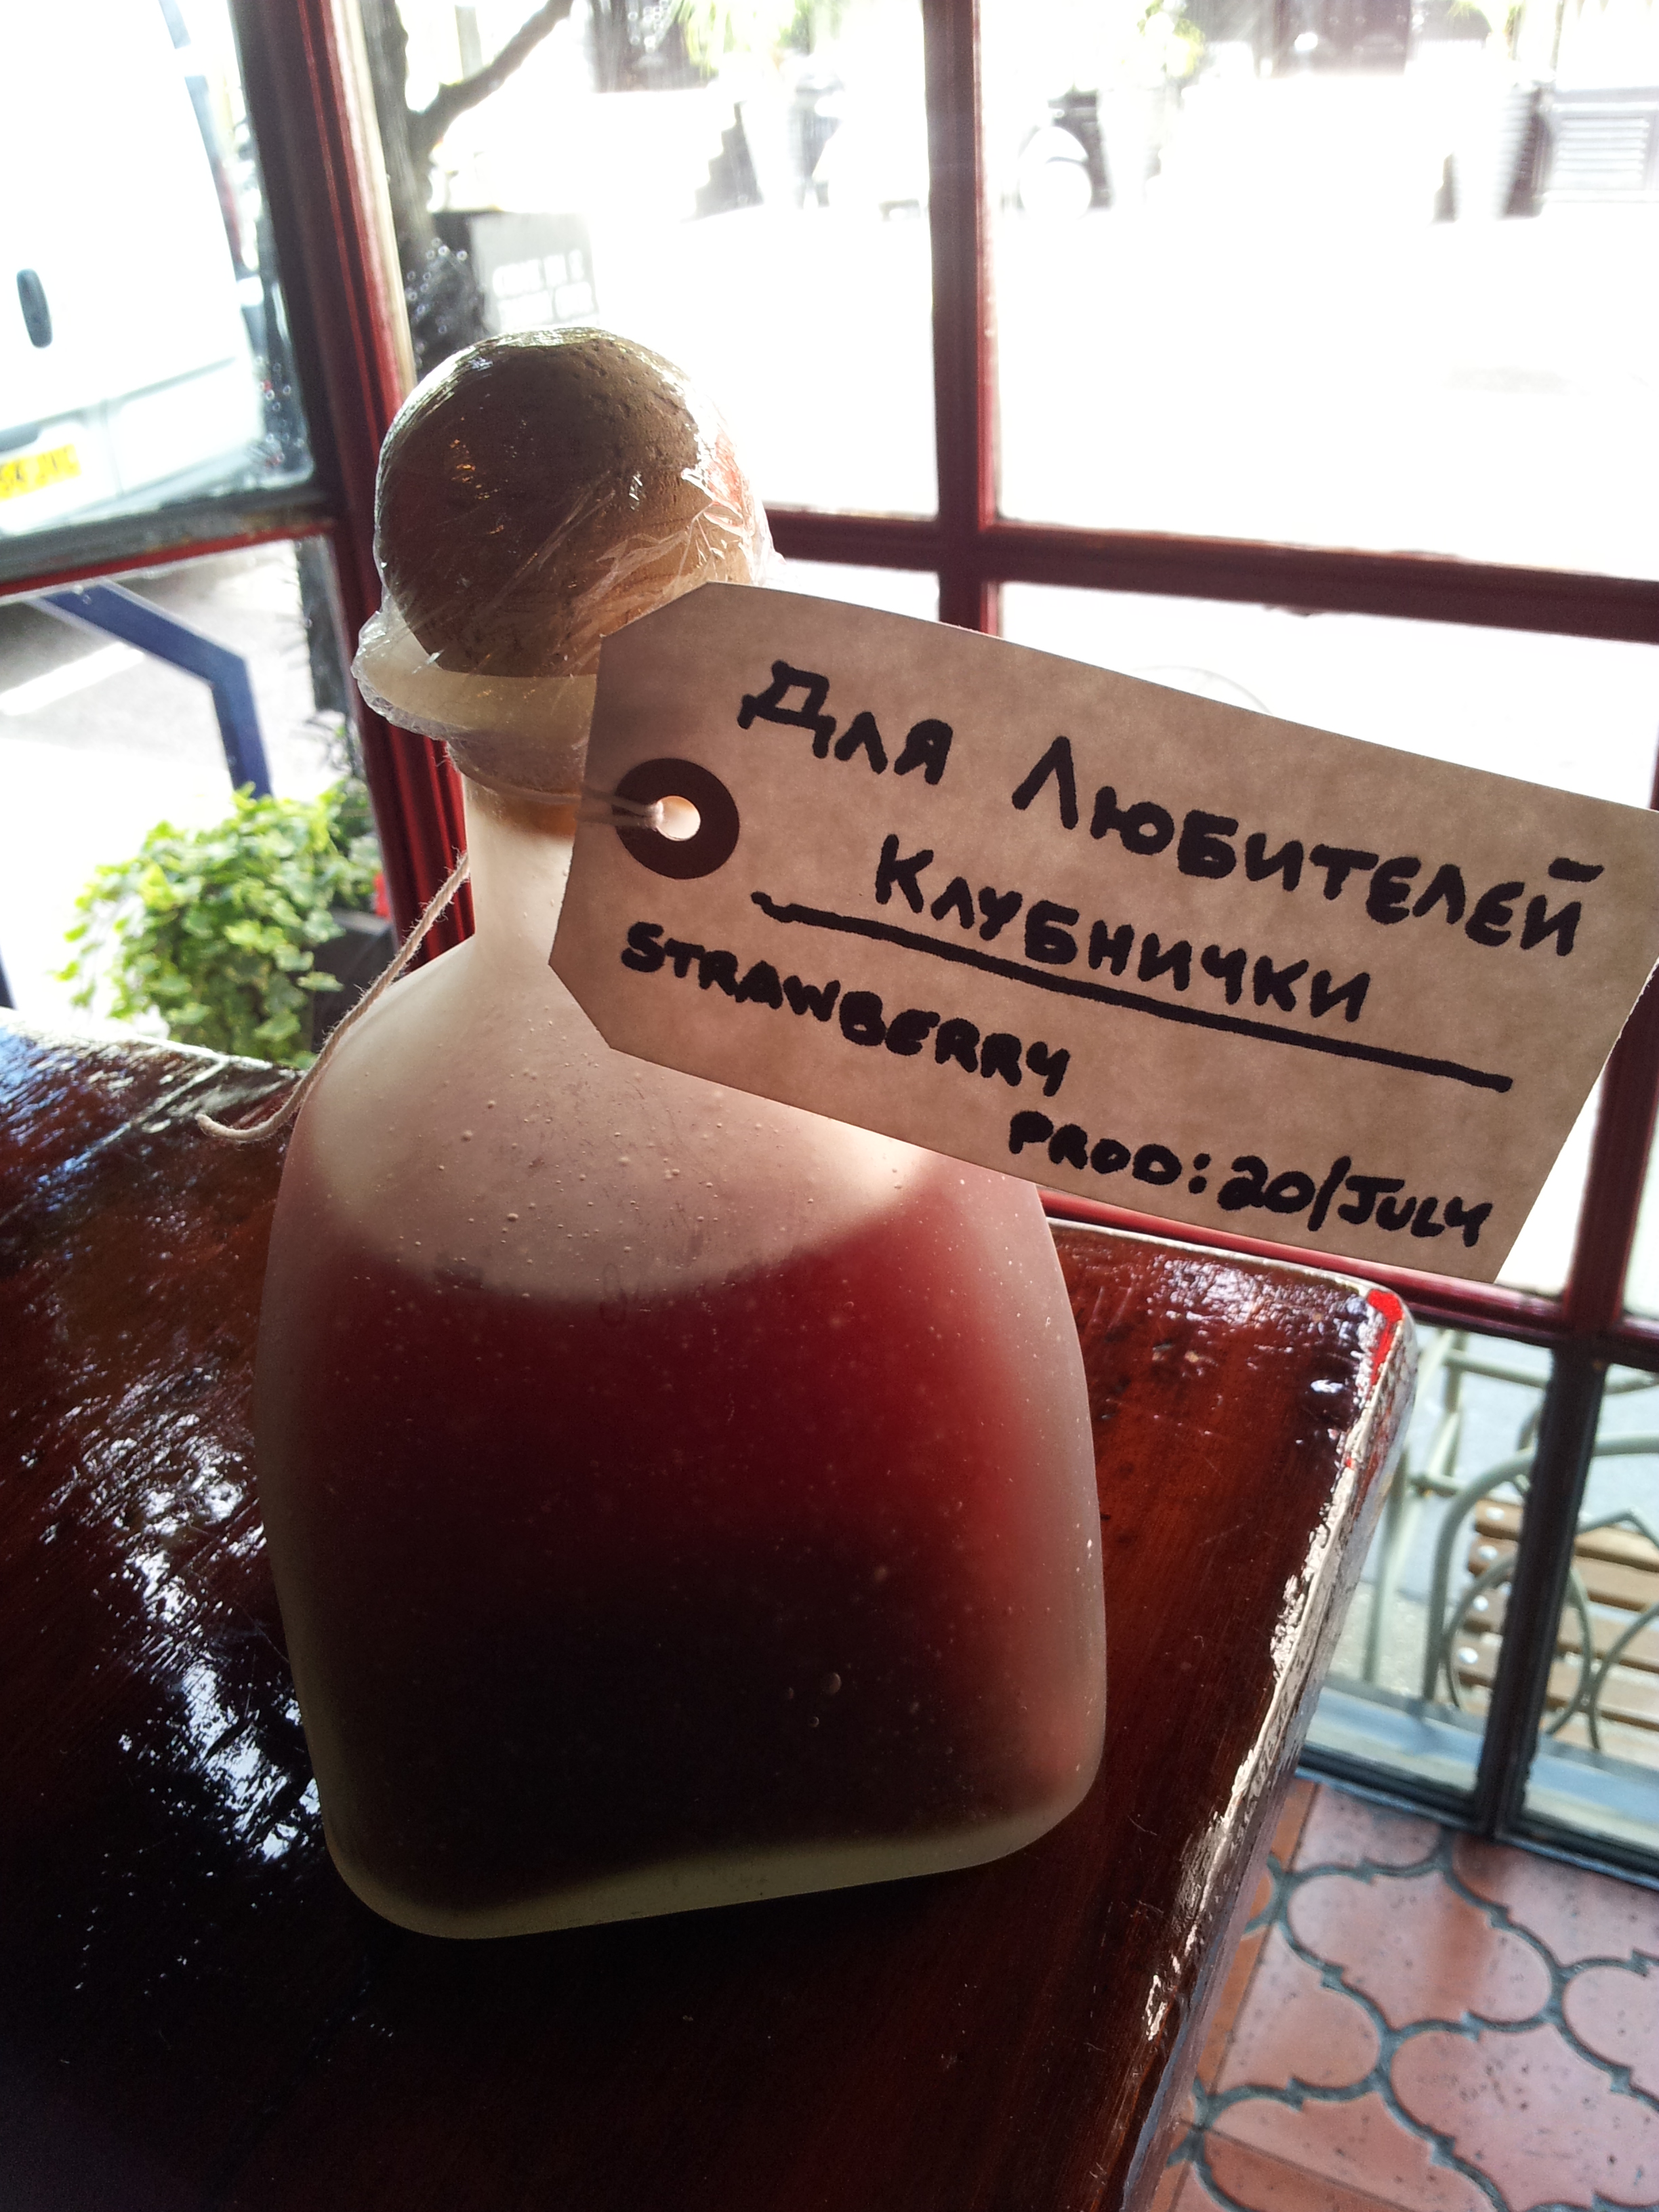 Для Любителей
Клубнички
STRAWBERRY
PROD: 20/JULY